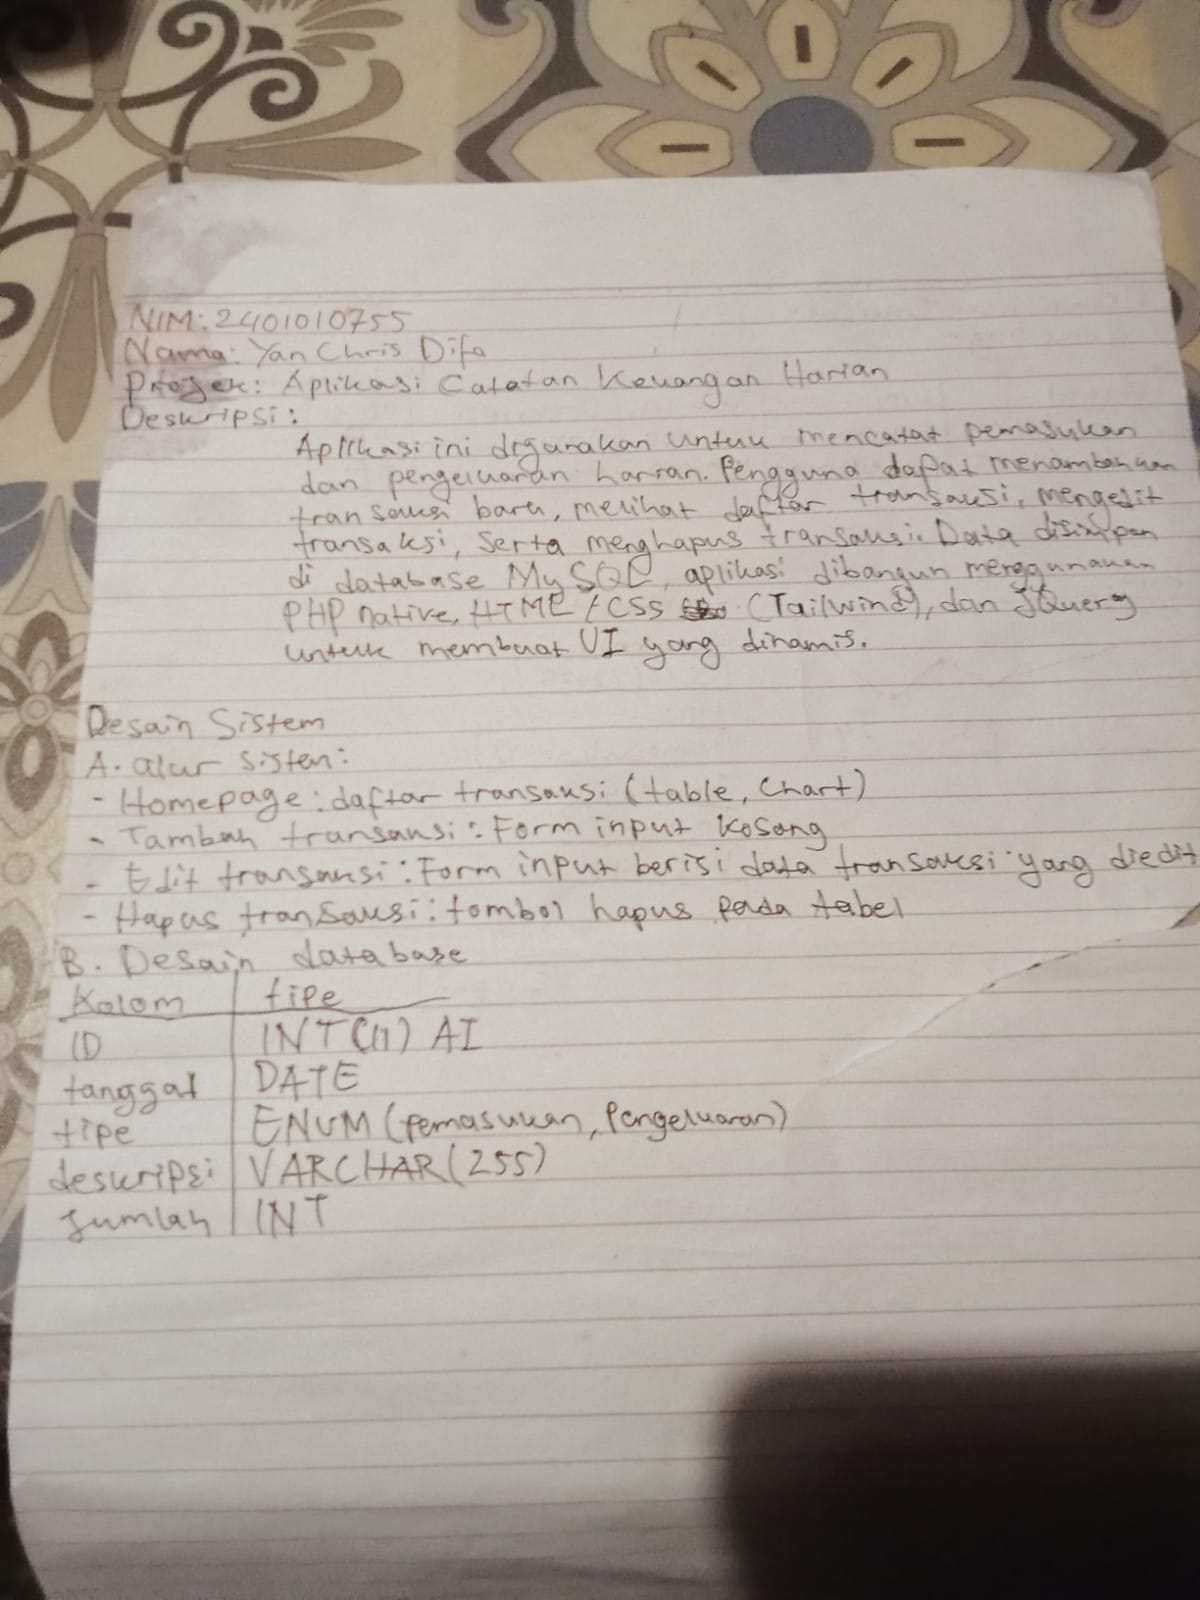 NIM: 2401010755
Nama: Yan Chris Difa
Projek: Aplikasi Catatan Keuangan Harian
Deskripsi:
Aplikasi ini digunakan untuk mencatat pemasukan
dan pengeluaran harian. Pengguna dapat menambahkan
transaksi baru, melihat daftar transaksi, mengedit
transaksi, serta menghapus transaksi. Data disimpan
di database MySQL, aplikasi dibangun menggunakan
PHP native, HTML/CSS (Tailwind), dan JQuery
untuk membuat UI yang dinamis.
Desain Sistem
A. alur sistem:
- Homepage: daftar transaksi (table, Chart)
- Tambah transaksi: Form input kosong
- Edit transaksi: Form input berisi data transaksi yang diedit
- Hapus transaksi: tombol hapus pada tabel
B. Desain database
Kolom tipe
ID INT(11) AI
tanggal DATE
tipe ENUM (Pemasukan, Pengeluaran)
deskripsi VARCHAR(255)
Jumlah INT